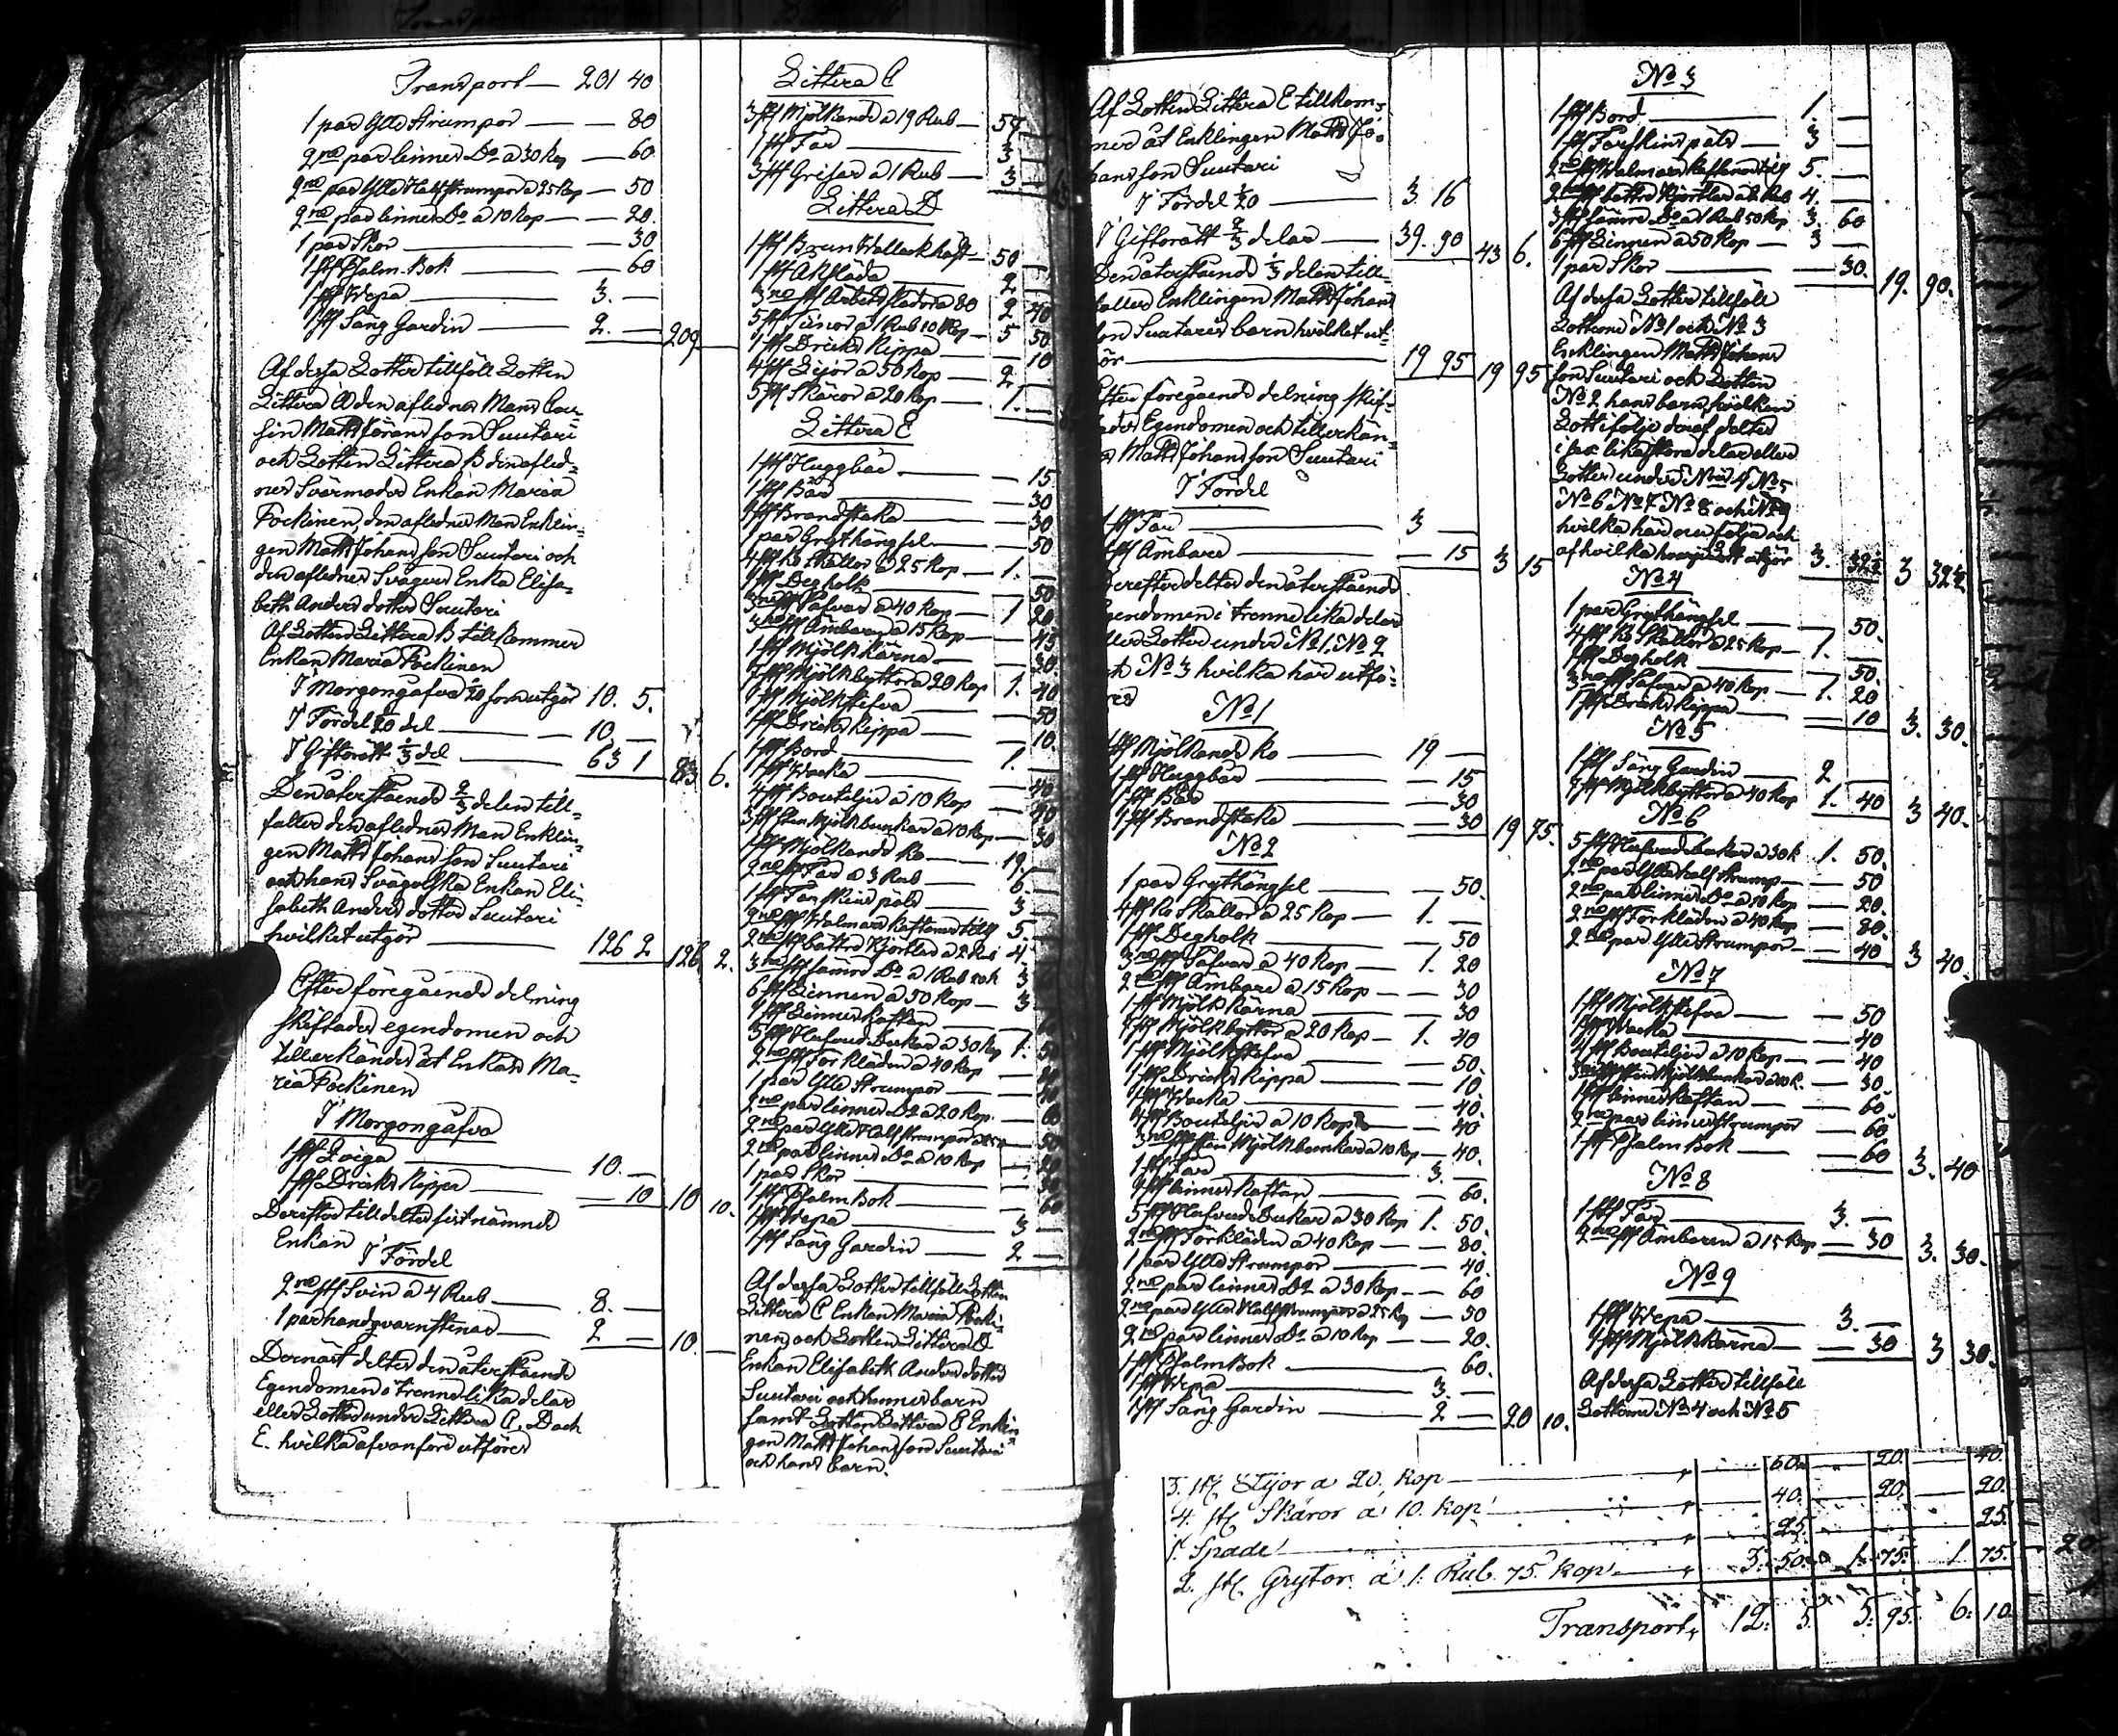 Transport — 201 40
1 par Ylle Strumpor — — 80
2ne par linnes Do a 30 kop — 60
2ne par Ylle Half strumpor a 25 kop — 50
2ne par linnes Do a 10 kop — — 20.
1 par Skor — — 30
1 st Psalm Bok — — 60
1 st Wepa — 3. —
1 st Säng Gardin — 2. — 209 —
Af dessa Lotter tillföll Lotten
Littera A den aflednes Mans
Matts Göransson Suutari
och Lotten Littera B den afled-
nes Svärmoder Enkan Maria
Pockinen, den aflednes Man Enklin-
gen Matts Johansson Suutari och
den aflednes Svägers Enka Elisa-
beth Anders dotter Suutari
Af Lotten Littera B tillkommer
Enkan Maria Pockinen
I Morgongåfva 1/20 som utgör 10. 5.
I Fördel 1/20 del — — 10. —
I Giftorätt 1/3 del — 63 1 83 6.
Den återstående 2/3 delen till-
faller den aflednes Man Enklin-
gen Matts Johansson Suutari
och hans Svägerska Enkan Eli-
sabeth Anders dotter Suutari
hvilket utgör — 126 2 126 2.
Efter föregående delning
skiftades egendomen och
tillerkändes åt Enkan Ma-
ria Pockinen
I Morgongåfva
1 st Qviga — 10. —
1 st Dricks Kippa — — 10 10 10.
Derefter tilldeltes förstnämnde
Enkan
I Fördel
2ne st Svin a 4 Rub — 8. —
1 par handqvarnstenar — 2 — 10. —
Dernäst deltes den återstående
Egendomen i trenne lika delar
eller Lotter under Littera C, D och
E. hvilka afvanföre utföres
Littera C
3 st Mjölkande a 19 Rub — 57 —
1 st Får — 3 —
3 st Grisar a 1 Rub — 3 —
Littera D
1 st Brun Wallack häst — 50 —
1 st Åksläda — 2 —
3ne st Arbets slädor a 80 2 40
5 st a 1 Rub 10 kop — 5 50
1 st Dricks Kippa — — 10
4 st Lijor a 50 kop — 2 —
5 st Skäror a 20 kop — 1. —
Littera E
1 st Huggbår — — 15
1 st Bår — — 30
1 st Brandstake — — 30
1 par Grythängsel — — 50
4 st Ko Skällor a 25 kop — 1. —
1 st Degholk — — 50
3ne st Såfvar a 40 kop — 1 20
3ne st Ämbare a 15 kop — — 45
1 st Mjölk kärna — — 30.
7 st Mjölkbyttor a 20 kop 1. 40
1 st Mjölkstefva — — 50
1 st Dricks Kippa — — 10.
1 st Bord — 1. —
1 st Wacka — — 40
4 st Bouteljer a 10 kop — 40
3 st sten Mjölkbunkar a 10 kop — 30
1 st Mjölkande ko — 19. —
2ne st Får a 3 Rub — 6. —
1 st Fårskins päls — 3 —
2ne st Walmars kaftaner till 5
2ne st bättre Kjortlar a 2 Rub 4.
3ne st sämre Do a 1 Rub 20 k 3
6 st Linnen a 50 kop — 3
1 st Linnes kaftan —
5 st Hufvud dukar a 30 kop 1. 50
2ne st Förkläden a 40 kop —
1 par Ylle Strumpor —
2ne par linnes Do a 20 kop. 60
2ne par Ylle Half strumpor a 25 k 50
2ne par linnes Do a 10 kop 20
1 par Skor —
1 st Psalm Bok — 60
1 st Wepa — 3 —
1 st Säng Gardin — 2 —
Af dessa Lotter tillföll Lotten
Littera C Enkan Maria Pocki-
nen och Lotten Littera D
Enkan Elisabeth Anders dotter
Suutari och hennes barn
samt Lotten Littera E Enklin-
gen Matts Johansson Suutari
och hans barn.
Af Lotten Littera E tillkom-
mer åt Enklingen Matts Jo-
hansson Suutari
I Fördel 1/20 — 3. 16
I Giftorätt 2/3 delar — 39. 90 43 6.
Den återstående 1/3 delen till-
faller Enklingen Matts Johans
son Suutaris barn hvilket ut-
gör — 19 95 19 95
Efter föregående delning skif-
tades Egendomen och tillerkän-
s Matts Johansson Suutari
I Fördel
1 st Får — 3 —
1 st Ämbare — — 15 3 15
Derefter deltes den återstående
Egendomen i trenne lika delar
eller Lotter under No 1, No 2
och No 3 hvilka här utfö-
res
No 1
1 st Mjölkande ko — 19 —
1 st Huggbår — — 15
1 st Bår — — 30
1 st Brandstake — — 30 19 75.
No 2
1 par Grythängsel — — 50.
4 st Ko Skällor a 25 kop — 1. —
1 st Degholk — — 50
3ne st Såfvar a 40 kop — 1. 20
2ne st Ämbare a 15 kop — — 30
1 st Mjölk kärna — — 30
7 st Mjölkbyttor a 20 kop — 1. 40
1 st Mjölkstefva — — 50.
1 st Dricks kippa — — 10.
1 st Wacka — — 40.
4 st Bouteljer a 10 kop — 40
3ne st sten Mjölkbunkar a 10 kop — 40.
1 st Får — 3. —
1 st linnes kaftan — — 60.
5 st Hufvud Dukar a 30 kop 1. 50.
2ne st Förkläden a 40 kop — — 80.
1 par Ylle Strumpor — — 40.
2ne par linnes Do a 30 kop — — 60
2ne par Ylle Half strumpor a 25 kop — 50
2ne par linnes Do a 10 kop — — 20.
1 st Psalm Bok — — 60.
1 st Wepa — 3. —
1 st Säng Gardin — 2 — 20 10.
No 3
1 st Bord — 1. —
1 st Fårskins päls — 3 —
2ne st Walmars kaftaner till 5. —
2ne st bättre Kjortlar a 2 Rub 4. —
3 st sämre Do a 1 Rub 20 kop 3. 60
6 st Linnen a 50 kop — 3 —
1 par Skor — — 30. 19. 90.
Af dessa Lotter tillföll
Lotterne No 1 och No 3
Enklingen Matts Johans
son Suutari och Lotten
No 2 hans barn, hvilken
Lott i följe deraf deltes
i sex lika stora delar eller
Lotter under No 4 No 5
No 6 No 7 No 8 och No 9
hvilka här nu följa och
af hvilka hvarje Lott utgör 3. 32½ 3 32½
No 4
1 par Grythängsel — — 50.
4 st Ko Skällor a 25 kop — 1. —
1 st Degholk — — 50.
3ne st Såfvar a 40 kop — 1. 20
1 st Dricks Kippa — — 10 3. 30.
No 5
1 st Säng Gardin — 2 —
7 st Mjölkbyttor a 40 kop 1. 40 3 40.
No 6
5 st Hufvud dukar a 30 k 1. 50.
2ne par Ylle Half strump — — 50
2ne par linnes Do a 10 kop — 20.
2ne st Förkläden a 40 kop — 80.
2ne par Ylle Strumpor — — 40 3 40.
No 7
1 st Mjölkstefva — — 50
1 st Wacka — — 40
4 st Bouteljer a 10 kop — — 40
3ne st sten Mjölkbunkar a 10 k. — 30.
1 st linnes kaftan — — 60.
2ne par linnes strumpor — 60
1 st Psalm Bok — — 60 3. 40
No 8
1 st Får — 3. —
2ne st Ämbaren a 15 kop — 30 3. 30.
No 9
1 st Wepa — 3. —
1 st Mjölk kärna — — 30 3 30.
Af dessa Lotter tillföll
Lotterne No 4 och No 5
3. st. Lijor a 20. kop — 60. 20. 40.
4. st. Skäror a 10. kop — 40. 20. 20.
1. Spade — 25. 25.
2. st. Grytor. á 1. Rub. 75. kop. — 3. 50. 1. 75. 1. 75.
Transport, 12. 5. 5. 95. 6. 10.